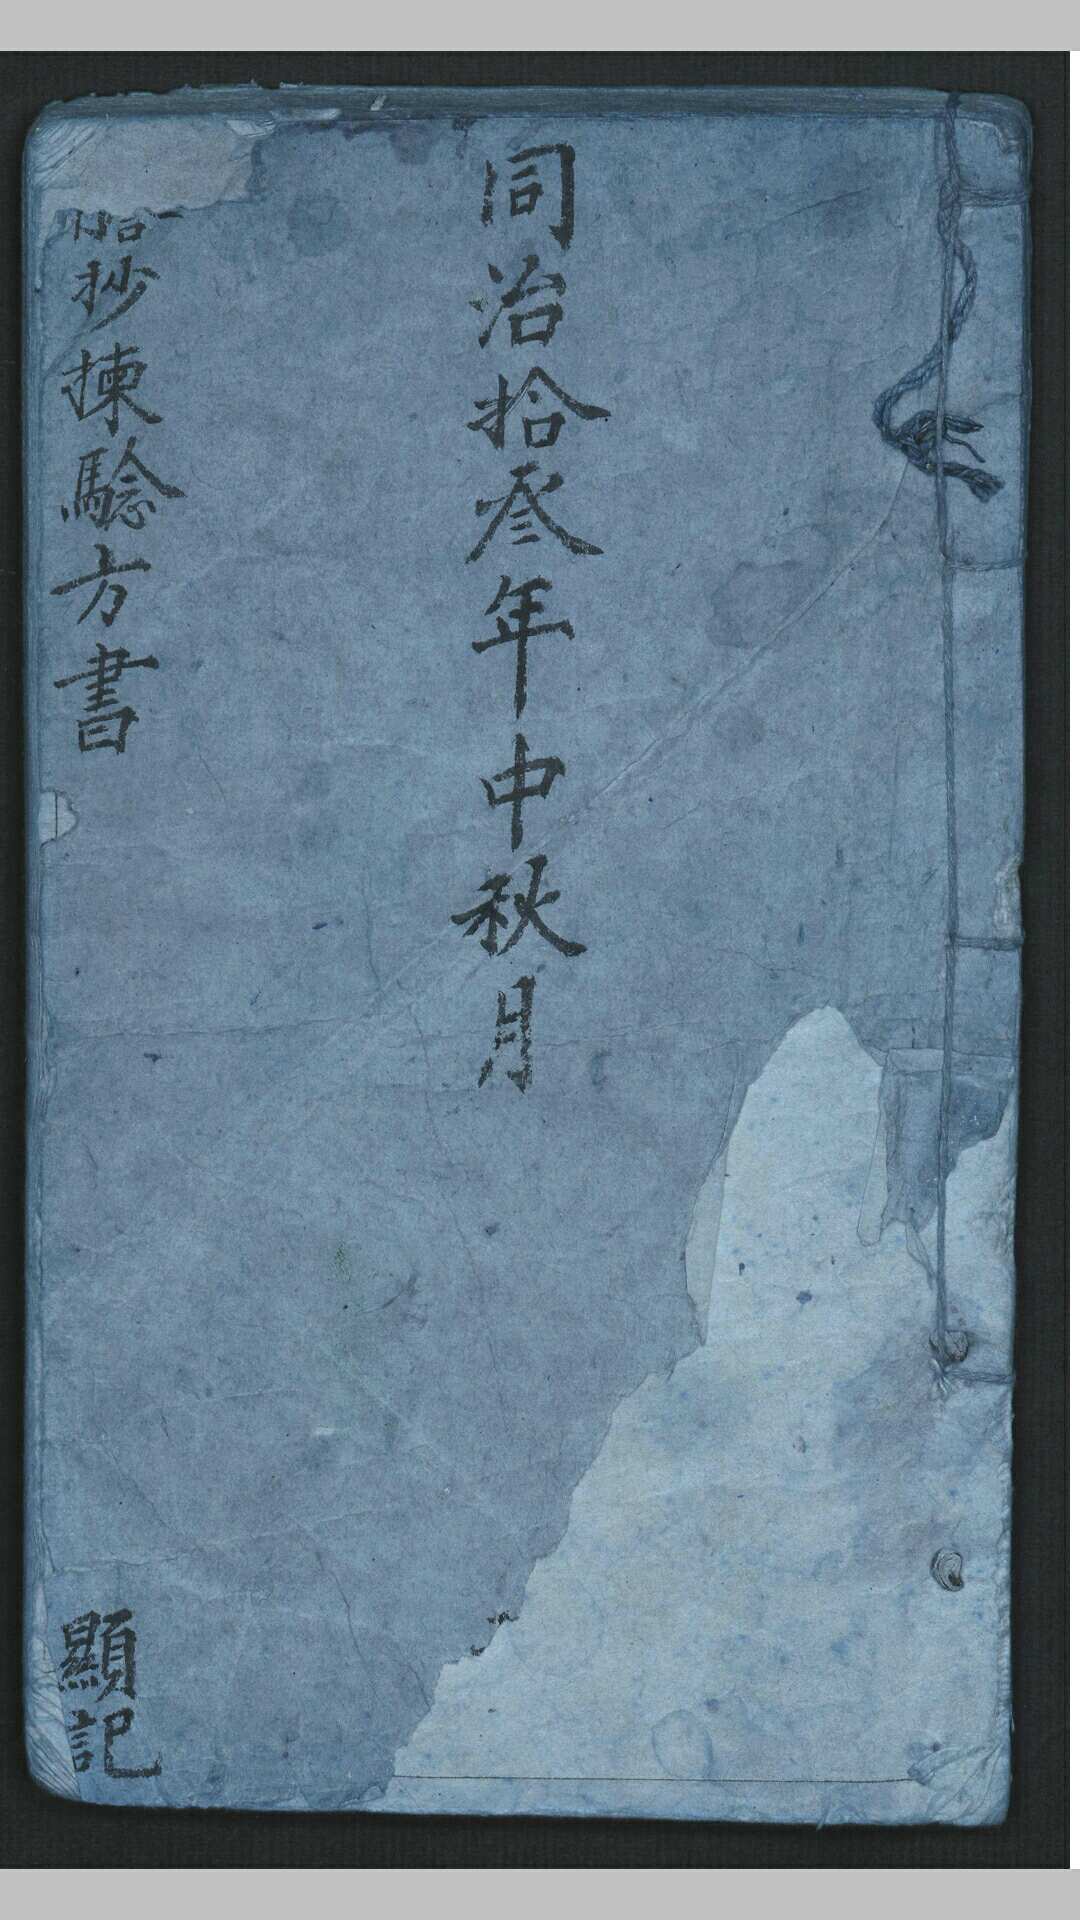 同治拾叄年中秋月
拾抄揀騐方書
顯記